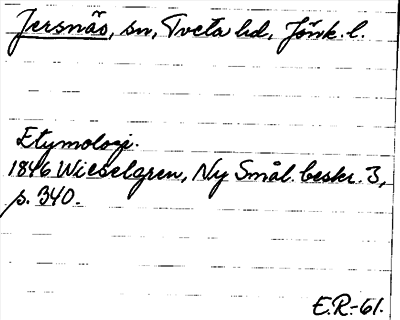 Jersnäs, sn, Tveta hd, Jönk. l.
Etymologi.
1846 Wieselgren, Ny Smål. beskr. 3,
s. 340.
E.R.-61.